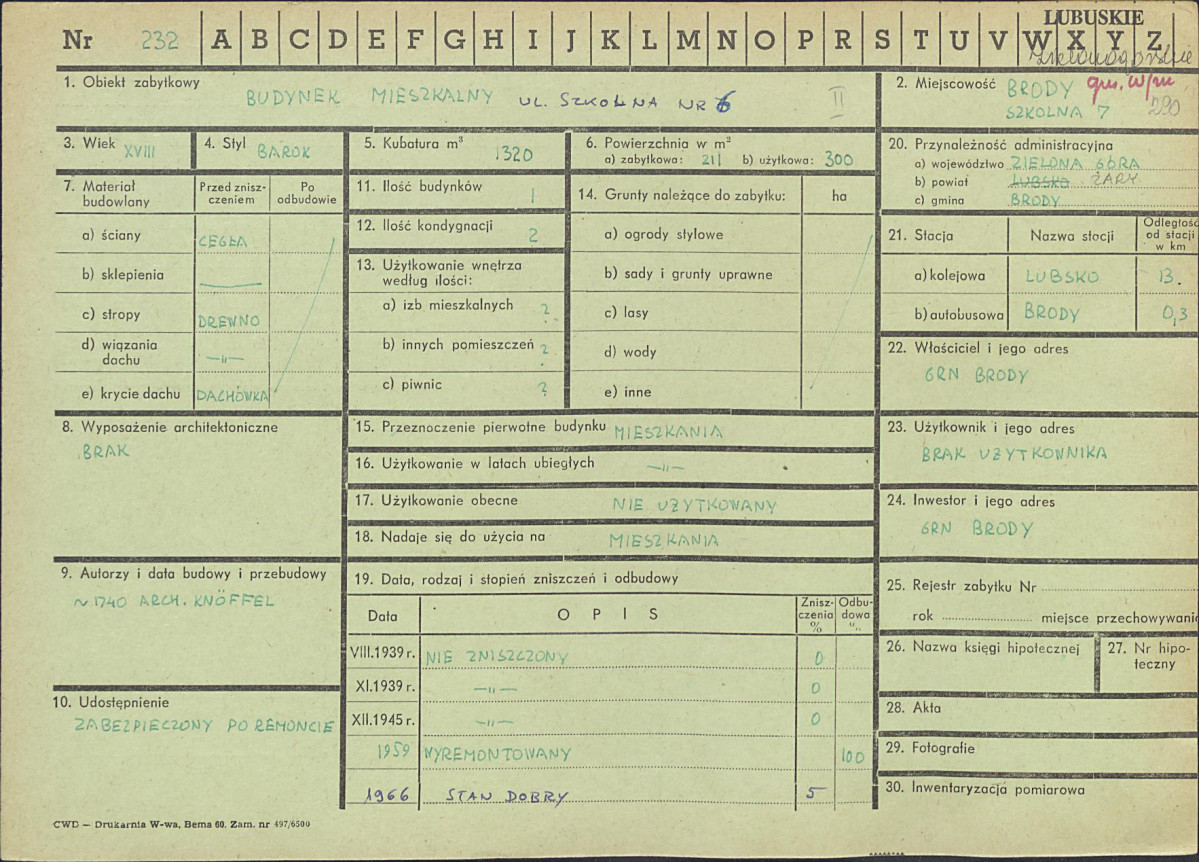 LUBUSKIE
Nr 232 A B C D E F G H I J K L M N O P R S T U V W X Y Z
1. Obiekt zabytkowy
BUDYNEK MIESZKALNY UL. SZKOLNA NR 6 II
2. Miejscowość BRODY gm. w/m
SZKOLNA 7 290
3. Wiek XVIII
4. Styl BAROK
5. Kubatura m³ 1320
6. Powierzchnia w m²
a) zabytkowa: 211 b) użytkowa: 300
20. Przynależność administracyjna
a) województwo ZIELONA GÓRA
b) powiat LUBSKO ŻARY
c) gmina BRODY
7. Materiał budowlany
Przed zniszczeniem
Po odbudowie
a) ściany CEGŁA
b) sklepienia —
c) stropy DREWNO
d) wiązania dachu —"—
e) krycie dachu DACHÓWKA
11. Ilość budynków 1
12. Ilość kondygnacji 2
13. Użytkowanie wnętrza według ilości:
a) izb mieszkalnych ?
b) innych pomieszczeń ?
c) piwnic ?
14. Grunty należące do zabytku: ha
a) ogrody stylowe
b) sady i grunty uprawne
c) lasy
d) wody
e) inne
21. Stacja Nazwa stacji Odległość od stacji w km
a) kolejowa LUBSKO 13.
b) autobusowa BRODY 0,3
22. Właściciel i jego adres
GRN BRODY
8. Wyposażenie architektoniczne
BRAK
15. Przeznaczenie pierwotne budynku MIESZKANIA
16. Użytkowanie w latach ubiegłych —"—
17. Użytkowanie obecne NIE UŻYTKOWANY
18. Nadaje się do użycia na MIESZKANIA
23. Użytkownik i jego adres
BRAK UŻYTKOWNIKA
24. Inwestor i jego adres
GRN BRODY
9. Autorzy i data budowy i przebudowy
~1740 ARCH. KNÖFFEL
19. Data, rodzaj i stopień zniszczeń i odbudowy
Data OPIS Zniszczenia % Odbudowa %
VIII.1939 r. NIE ZNISZCZONY 0
XI.1939 r. —"— 0
XII.1945 r. —"— 0
1959 WYREMONTOWANY 100
1966 STAN DOBRY 5
25. Rejestr zabytku Nr
rok miejsce przechowywani
26. Nazwa księgi hipotecznej
27. Nr hipoteczny
10. Udostępnienie
ZABEZPIECZONY PO REMONCIE
28. Akta
29. Fotografie
30. Inwentaryzacja pomiarowa
CWD — Drukarnia W-wa, Bema 60. Zam. nr 497/6500